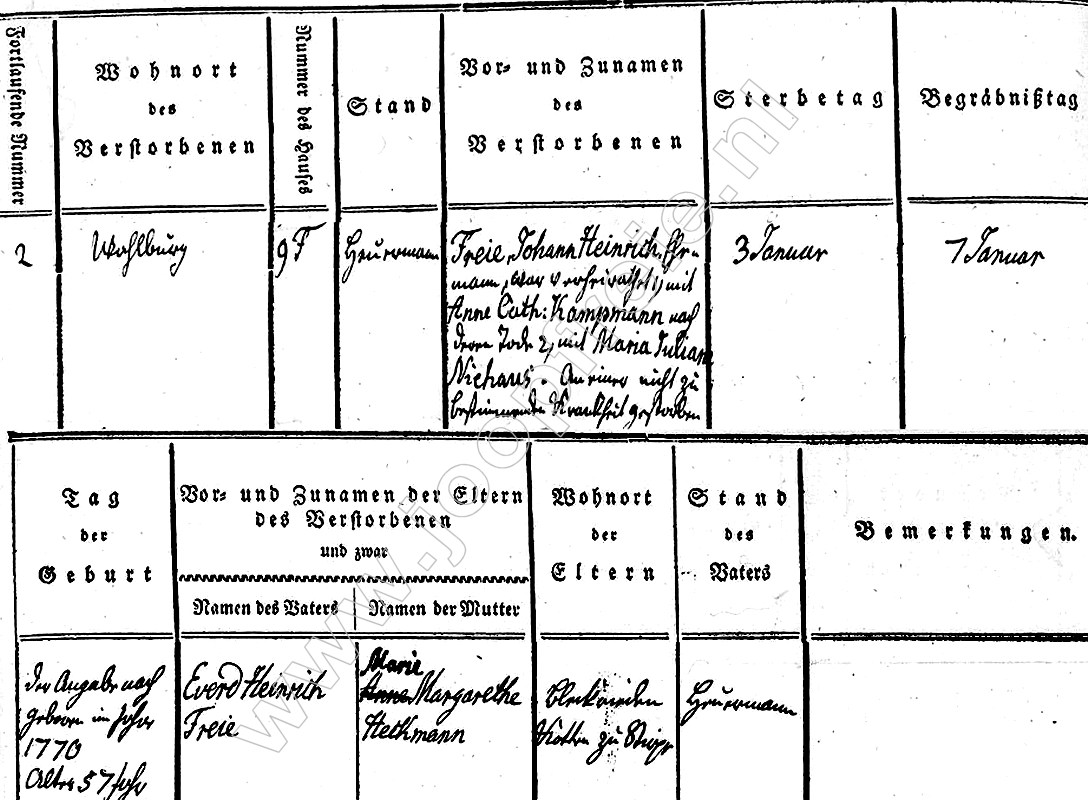 Fortlaufende Nummer
Wohnort
des
Verstorbenen
Nummer des Hauses
Stand
Vor- und Zunamen
des
Verstorbenen
Sterbetag
Begräbnißtag
2
Wahlburg
9 F
Heuermann
Freie, Johann Heinrich, Ehe-
mann, war verheirathet 1, mit
Anne Cath: Kampmann nach
deren Tode 2, mit Maria Juliana
Niehaus. An einer nicht zu
bestimmenden Krankheit gestorben
3 Januar
7 Januar
Tag
der
Geburt
Vor- und Zunamen der Eltern
des Verstorbenen
und zwar
Namen des Vaters
Namen der Mutter
Wohnort
der
Eltern
Stand
des
Vaters
Bemerkungen.
der Angabe nach
geboren im Jahr
1770
Alter 57 Jahr
Everd Heinrich
Freie
Marie
Anne Margarethe
Heckmann
Kotten zu
Heuermann
www.joopfreie.nl